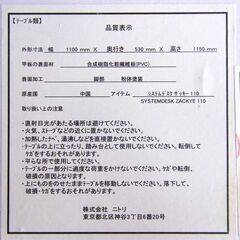 【テーブル類】
品質表示
外形寸法 幅 1100 mm X 奥行き 530 mm X 高さ 1150 mm
甲板の表面材 合成樹脂化粧繊維板(PVC)
表面加工 脚部 粉体塗装
原産国 中国 アイテム システムデスク ザッキー110
SYSTEMDESK ZACKYE 110
取り扱い上の注意
・直射日光があたる場所は避けてください。
・火気、ストーブなどの近くに置かないでください。
・加熱したナベ、湯沸しなどを直接置かないでください。
・テーブルの上に立ったり、踏み台として使用しないでください。転倒してケガをするおそれがあります。
・平らな所で使用してください。
・テーブルの一部分に過度な荷重をかけないでください。ケガや転倒、破損の原因となります。
・上にものをのせたままテーブルを移動しないでください。落下して、ケガをするおそれがあります。
株式会社 ニトリ
東京都北区神谷3丁目6番20号